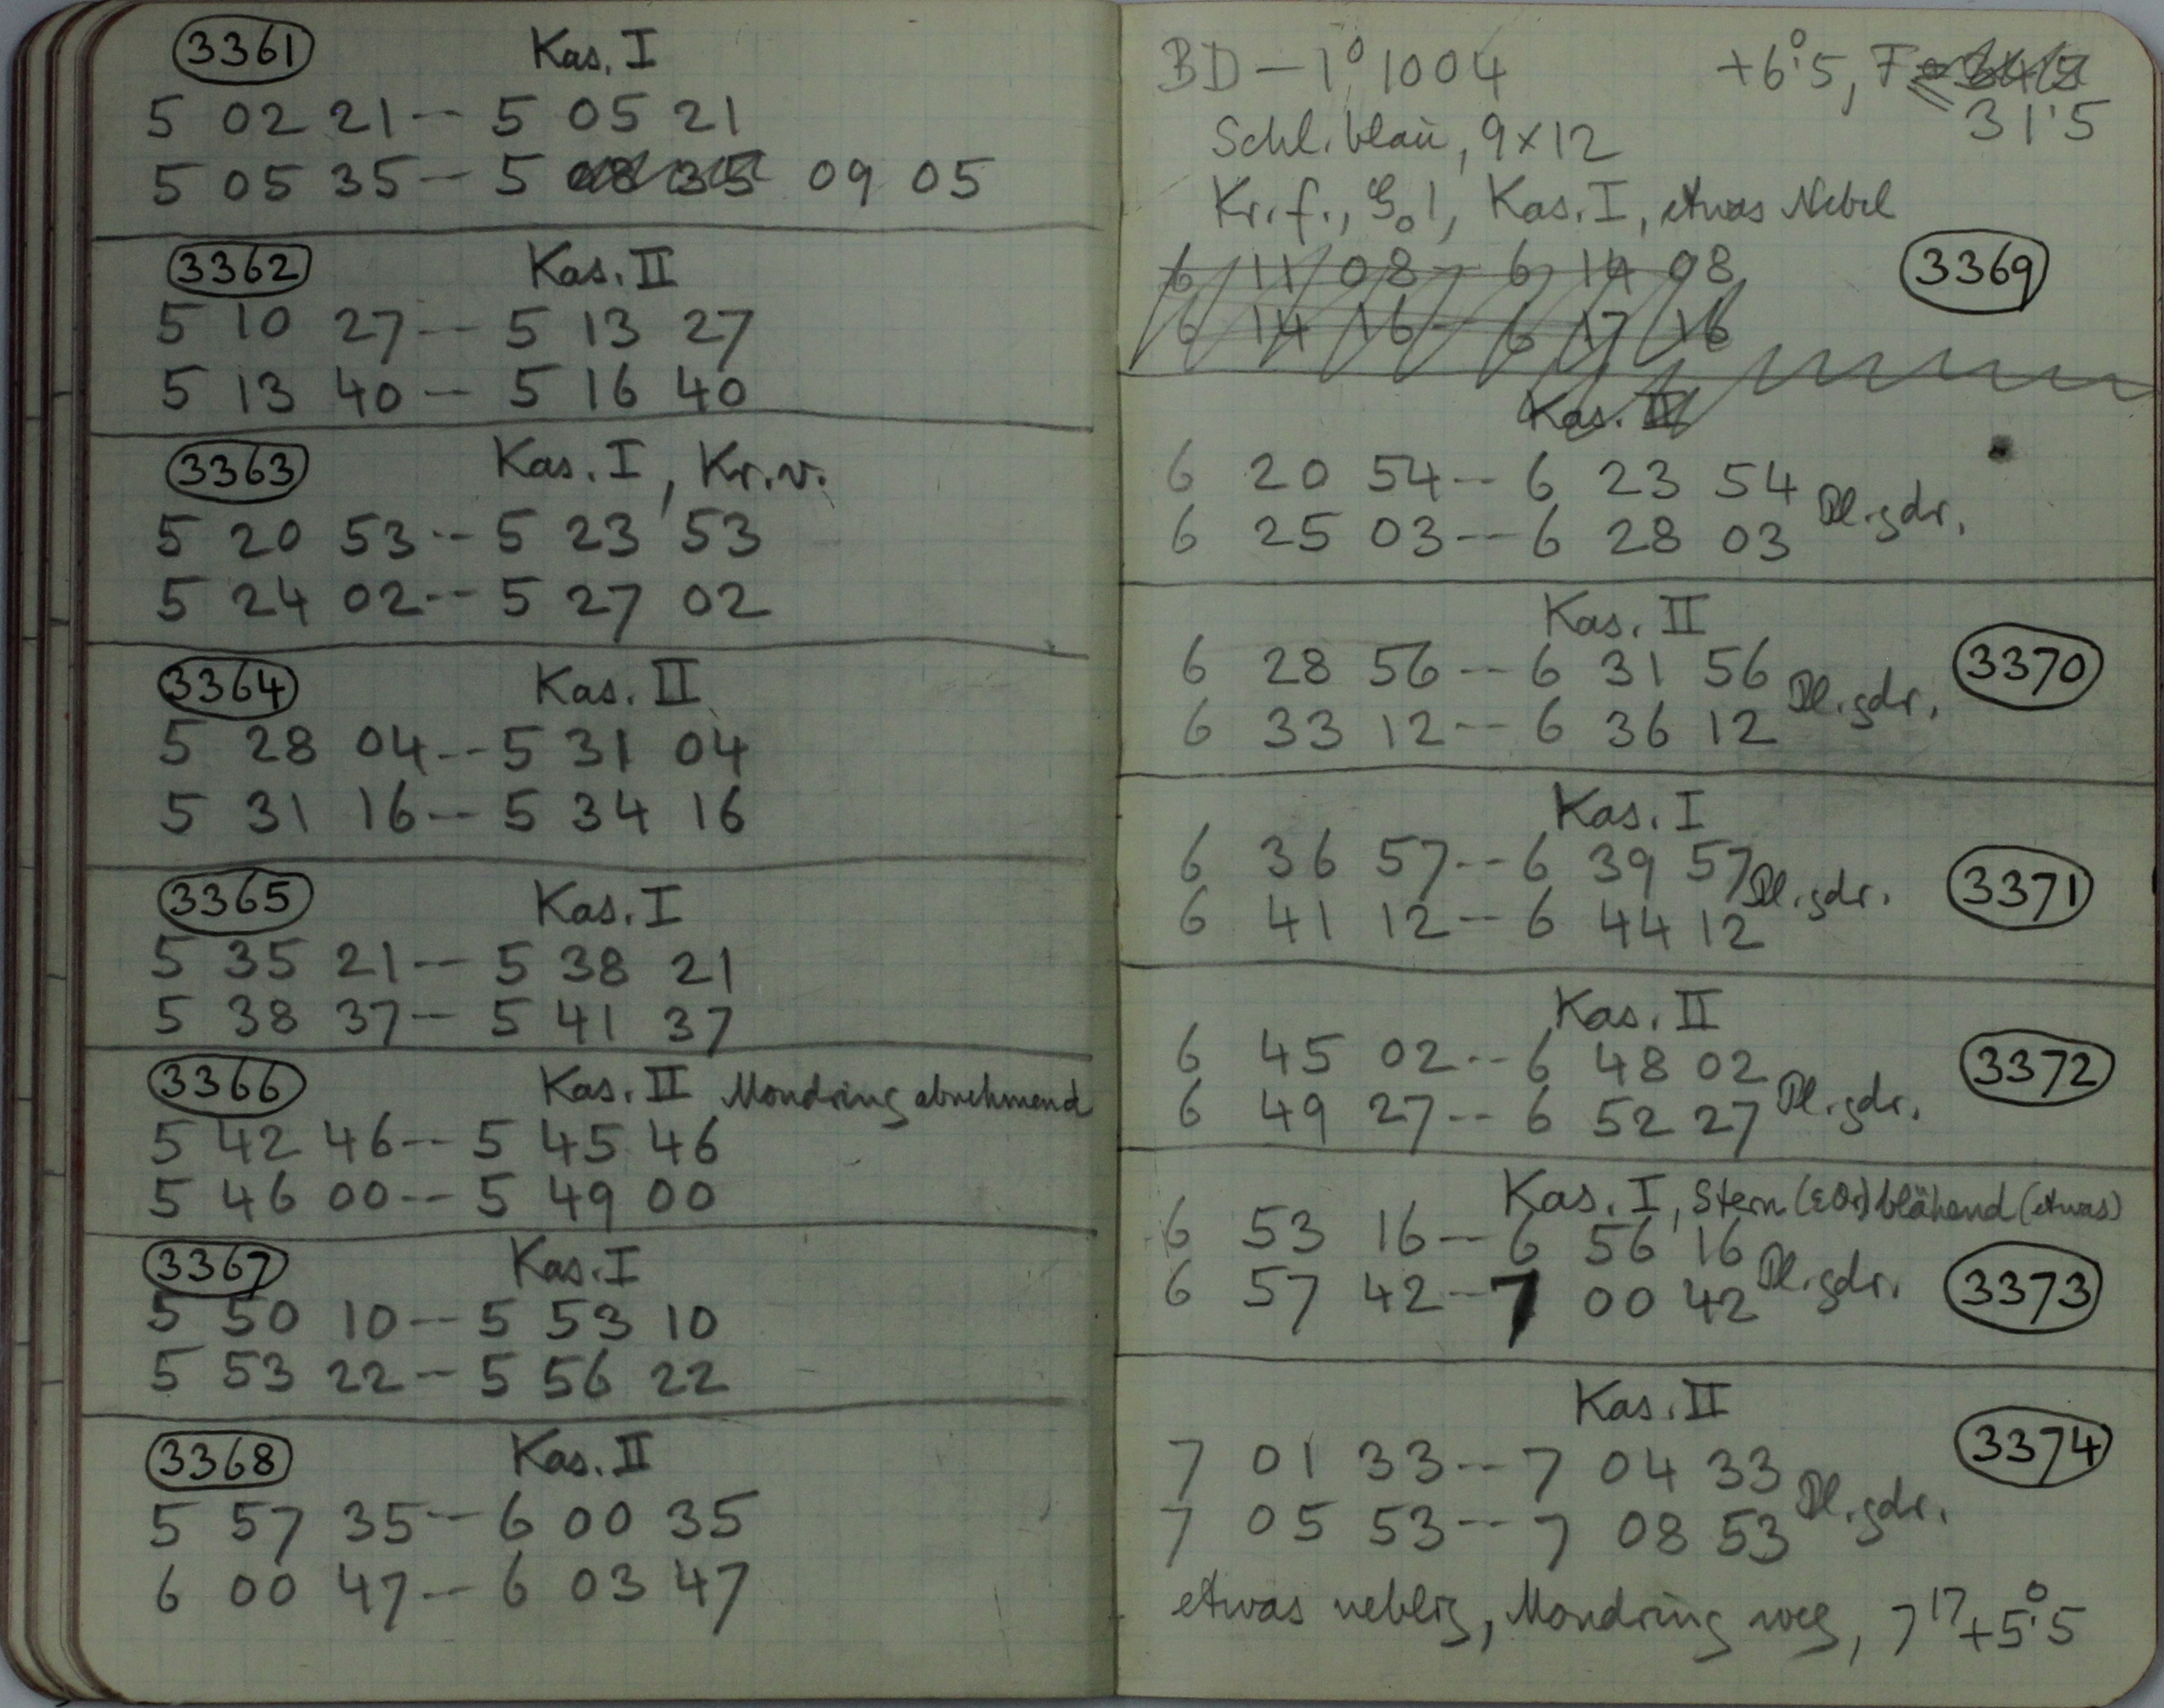 3361 Kas. I
5 02 21 -- 5 05 21
5 05 35 -- 5 08 35 09 05
3362 Kas. II
5 10 27 -- 5 13 27
5 13 40 -- 5 16 40
3363 Kas. I, Kr. v.
5 20 53 -- 5 23 53
5 24 02 -- 5 27 02
3364 Kas. II
5 28 04 -- 5 31 04
5 31 16 -- 5 34 16
3365 Kas. I
5 35 21 -- 5 38 21
5 38 37 -- 5 41 37
3366 Kas. II Mondring abnehmend
5 42 46 -- 5 45 46
5 46 00 -- 5 49 00
3367 Kas. I
5 50 10 -- 5 53 10
5 53 22 -- 5 56 22
3368 Kas. II
5 57 35 -- 6 00 35
6 00 47 -- 6 03 47
BD – 1° 1004 +6°.5, F =
31'5
Schl. blau, 9 x 12
Kr. f., Kas. I, etwas Nebel
6 11 08 -- 6 14 08 3369
6 14 16 -- 6 17 16
Kas. II
6 20 54 -- 6 23 54 Pl. gdr.
6 25 03 -- 6 28 03
Kas. II
6 28 56 -- 6 31 56 Pl. gdr. 3370
6 33 12 -- 6 36 12
Kas. I
6 36 57 -- 6 39 57 Pl. gdr. 3371
6 41 12 -- 6 44 12
Kas. II
6 45 02 -- 6 48 02 Pl. gdr. 3372
6 49 27 -- 6 52 27
Kas. I, Stern (ε Ori) blähend (etwas)
6 53 16 -- 6 56 16 Pl. gdr. 3373
6 57 42 -- 7 00 42
Kas. II
7 01 33 -- 7 04 33 Pl. gdr. 3374
7 05 53 -- 7 08 53
etwas neblig, Mondring weg, 7 17 +5°.5